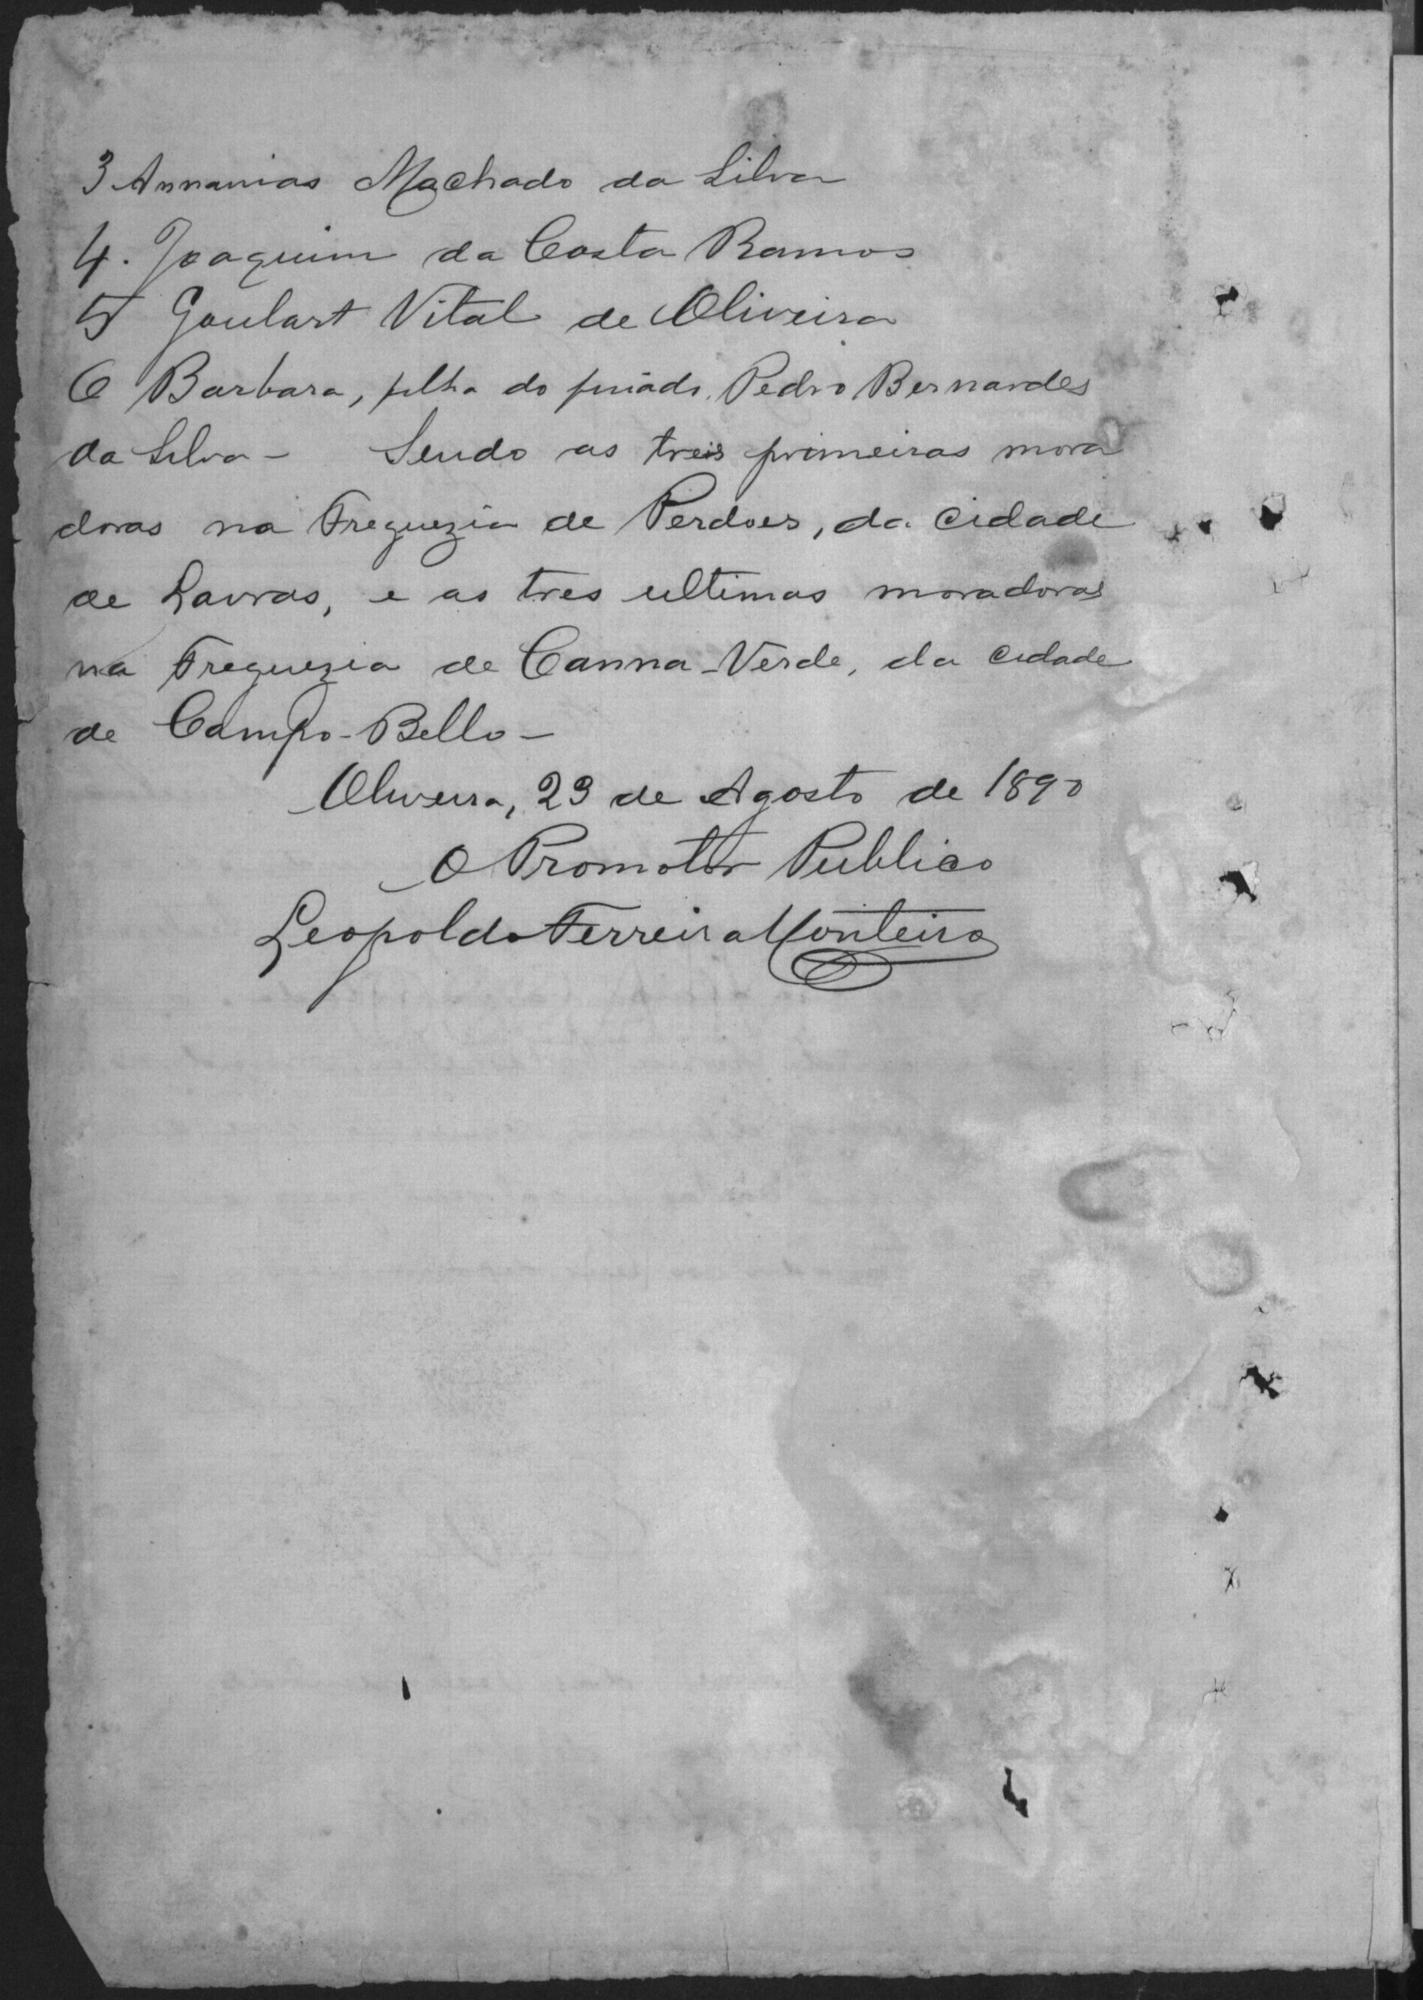 3 Annanias Machado da Silva
4. Joaquim da Costa Ramos
5 Goulart Vital de Oliveira
6 Barbara, filha do finado Pedro Bernardes
da Silva - Sendo as treis primeiras mora
doras na Freguezia de Perdoes, da cidade
de Lavras, e as tres ultimas moradoras
na Freguezia de Canna-Verde, da cidade
de Campo-Bello -
Oliveira, 23 de Agosto de 1890
O Promotor Publico
Leopoldo Ferreira Monteiro